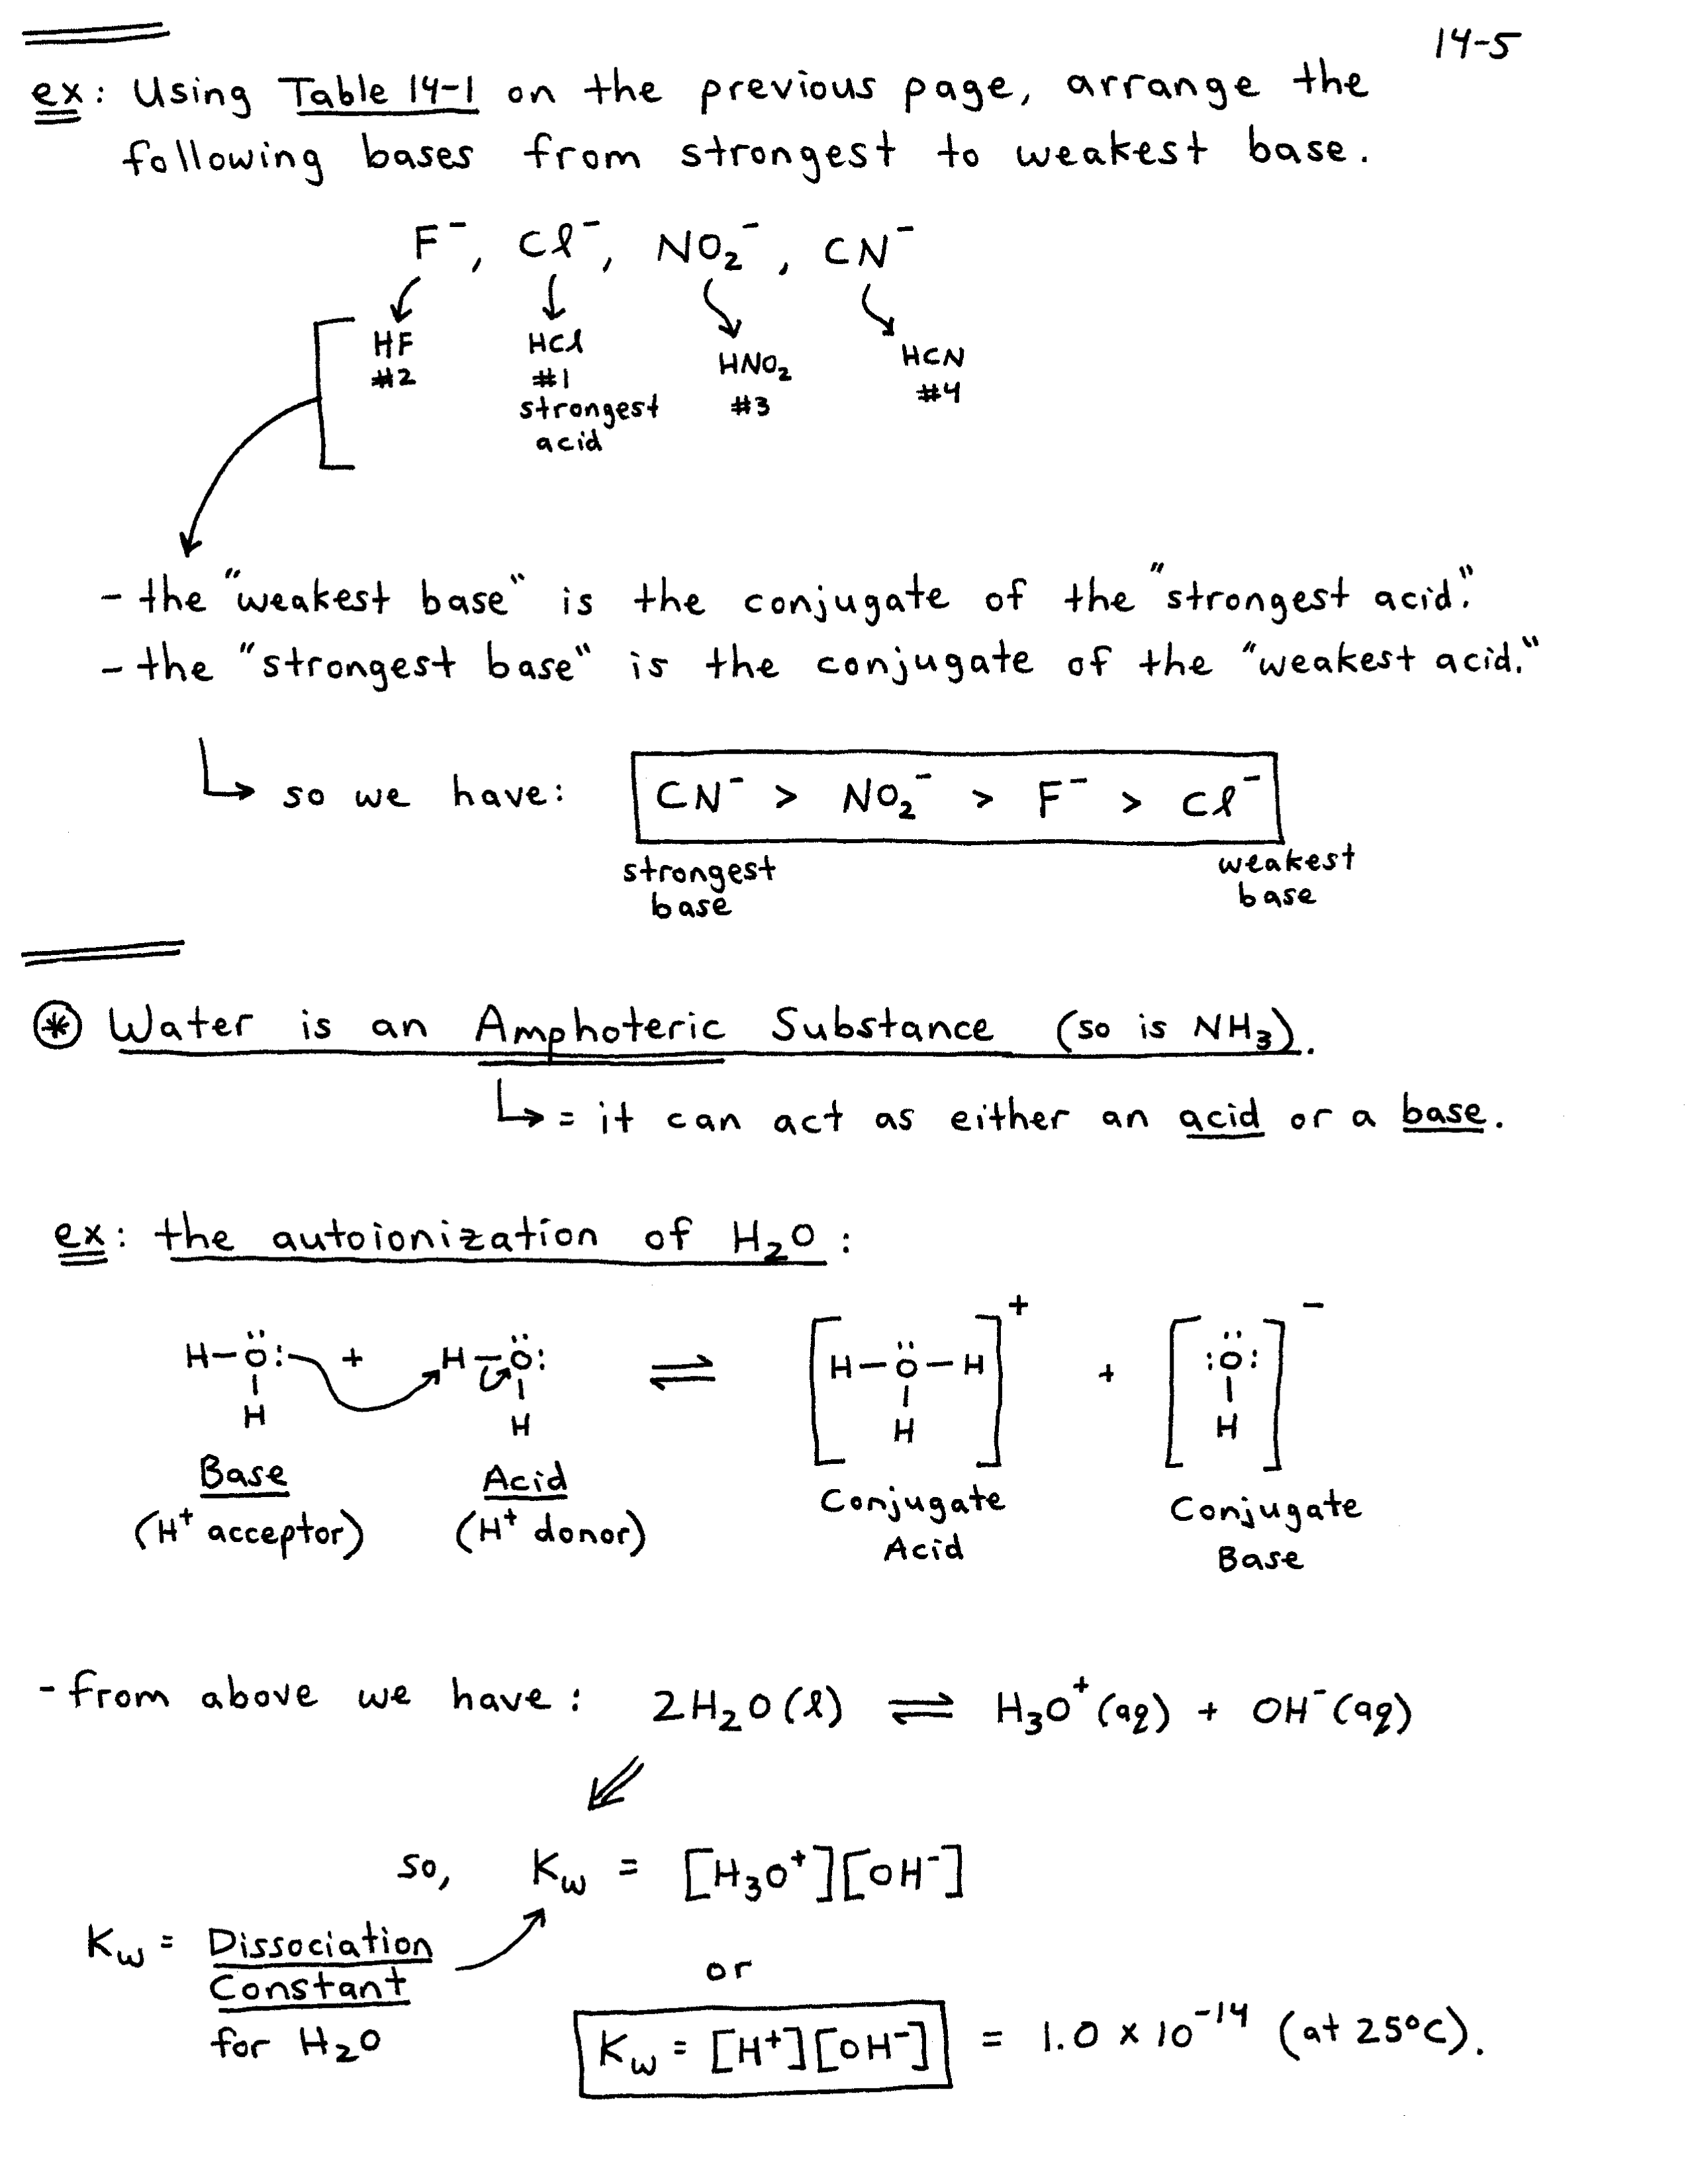 14-5
ex: Using Table 14-1 on the previous page, arrange the
following bases from strongest to weakest base.
F⁻, Cl⁻, NO₂⁻, CN⁻
HF HCl HNO₂ HCN
#2 #1 #3 #4
strongest
acid
- the "weakest base" is the conjugate of the "strongest acid."
- the "strongest base" is the conjugate of the "weakest acid."
so we have: CN⁻ > NO₂⁻ > F⁻ > Cl⁻
strongest base weakest base
⊛ Water is an Amphoteric Substance (so is NH₃).
↳ = it can act as either an acid or a base.
ex: the autoionization of H₂O:
H-Ö: + H-Ö: ⇌ [H-Ö-H]⁺ + [:Ö:]⁻
H H H H
Base Acid Conjugate Acid Conjugate Base
(H⁺ acceptor) (H⁺ donor)
- from above we have: 2H₂O(l) ⇌ H₃O⁺(aq) + OH⁻(aq)
so, Kw = [H₃O⁺][OH⁻]
Kw = Dissociation
Constant
for H₂O
or
Kw = [H⁺][OH⁻] = 1.0 × 10⁻¹⁴ (at 25°C).